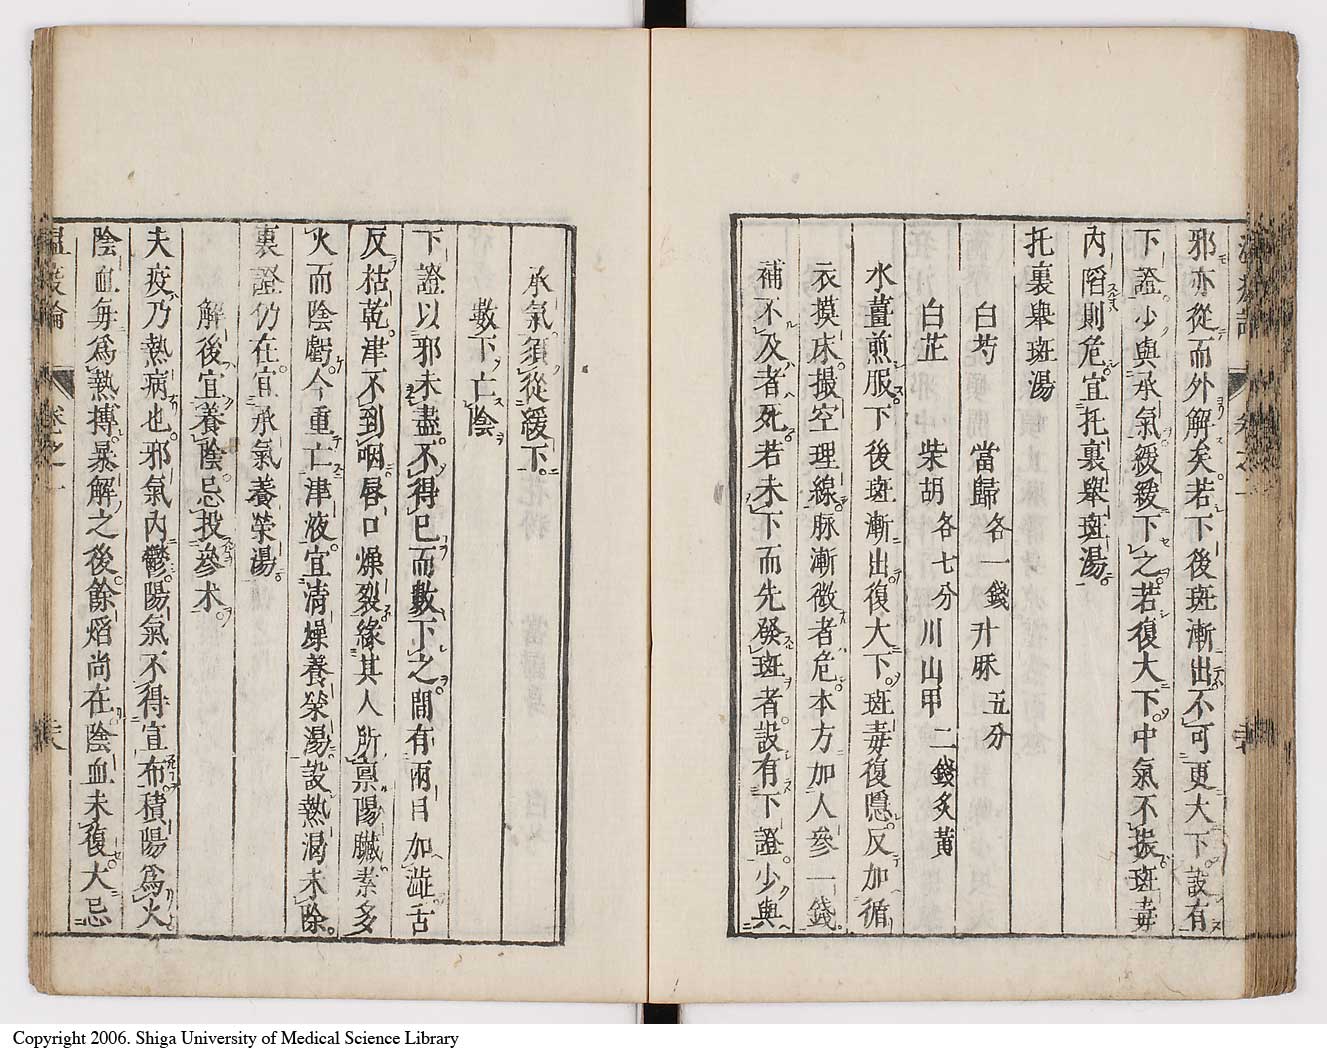 邪亦從而外解矣若下後斑漸出不可更大下設有
下證少與承氣緩緩下之若復大下中氣不振斑毒
內陷則危宜托裏舉斑湯
托裏舉斑湯
白芍 當歸各一錢升麻五分
白芷 柴胡各七分川山甲二錢炙黃
水薑煎服下後斑漸出復大下斑毒復隱反加循
衣摸床撮空理線脉漸微者危本方加人參一錢
補不及者死若未下而先發斑者設有下證少與
承氣須從緩下
數下亡陰
下證以邪未盡不得已而數下之間有兩目加澁舌
反枯乾津不到咽唇口燥裂緣其人所禀陽臟素多
火而陰虧今重亡津液宜清燥養榮湯設熱渴未除
裏證仍在宜承氣養榮湯
解後宜養陰忌投參朮
夫疫乃熱病也邪氣內鬱陽氣不得宣布積陽爲火
陰血每爲熱搏暴解之後餘焰尚在陰血未復大忌
溫疫論 卷之一
Copyright 2006. Shiga University of Medical Science Library